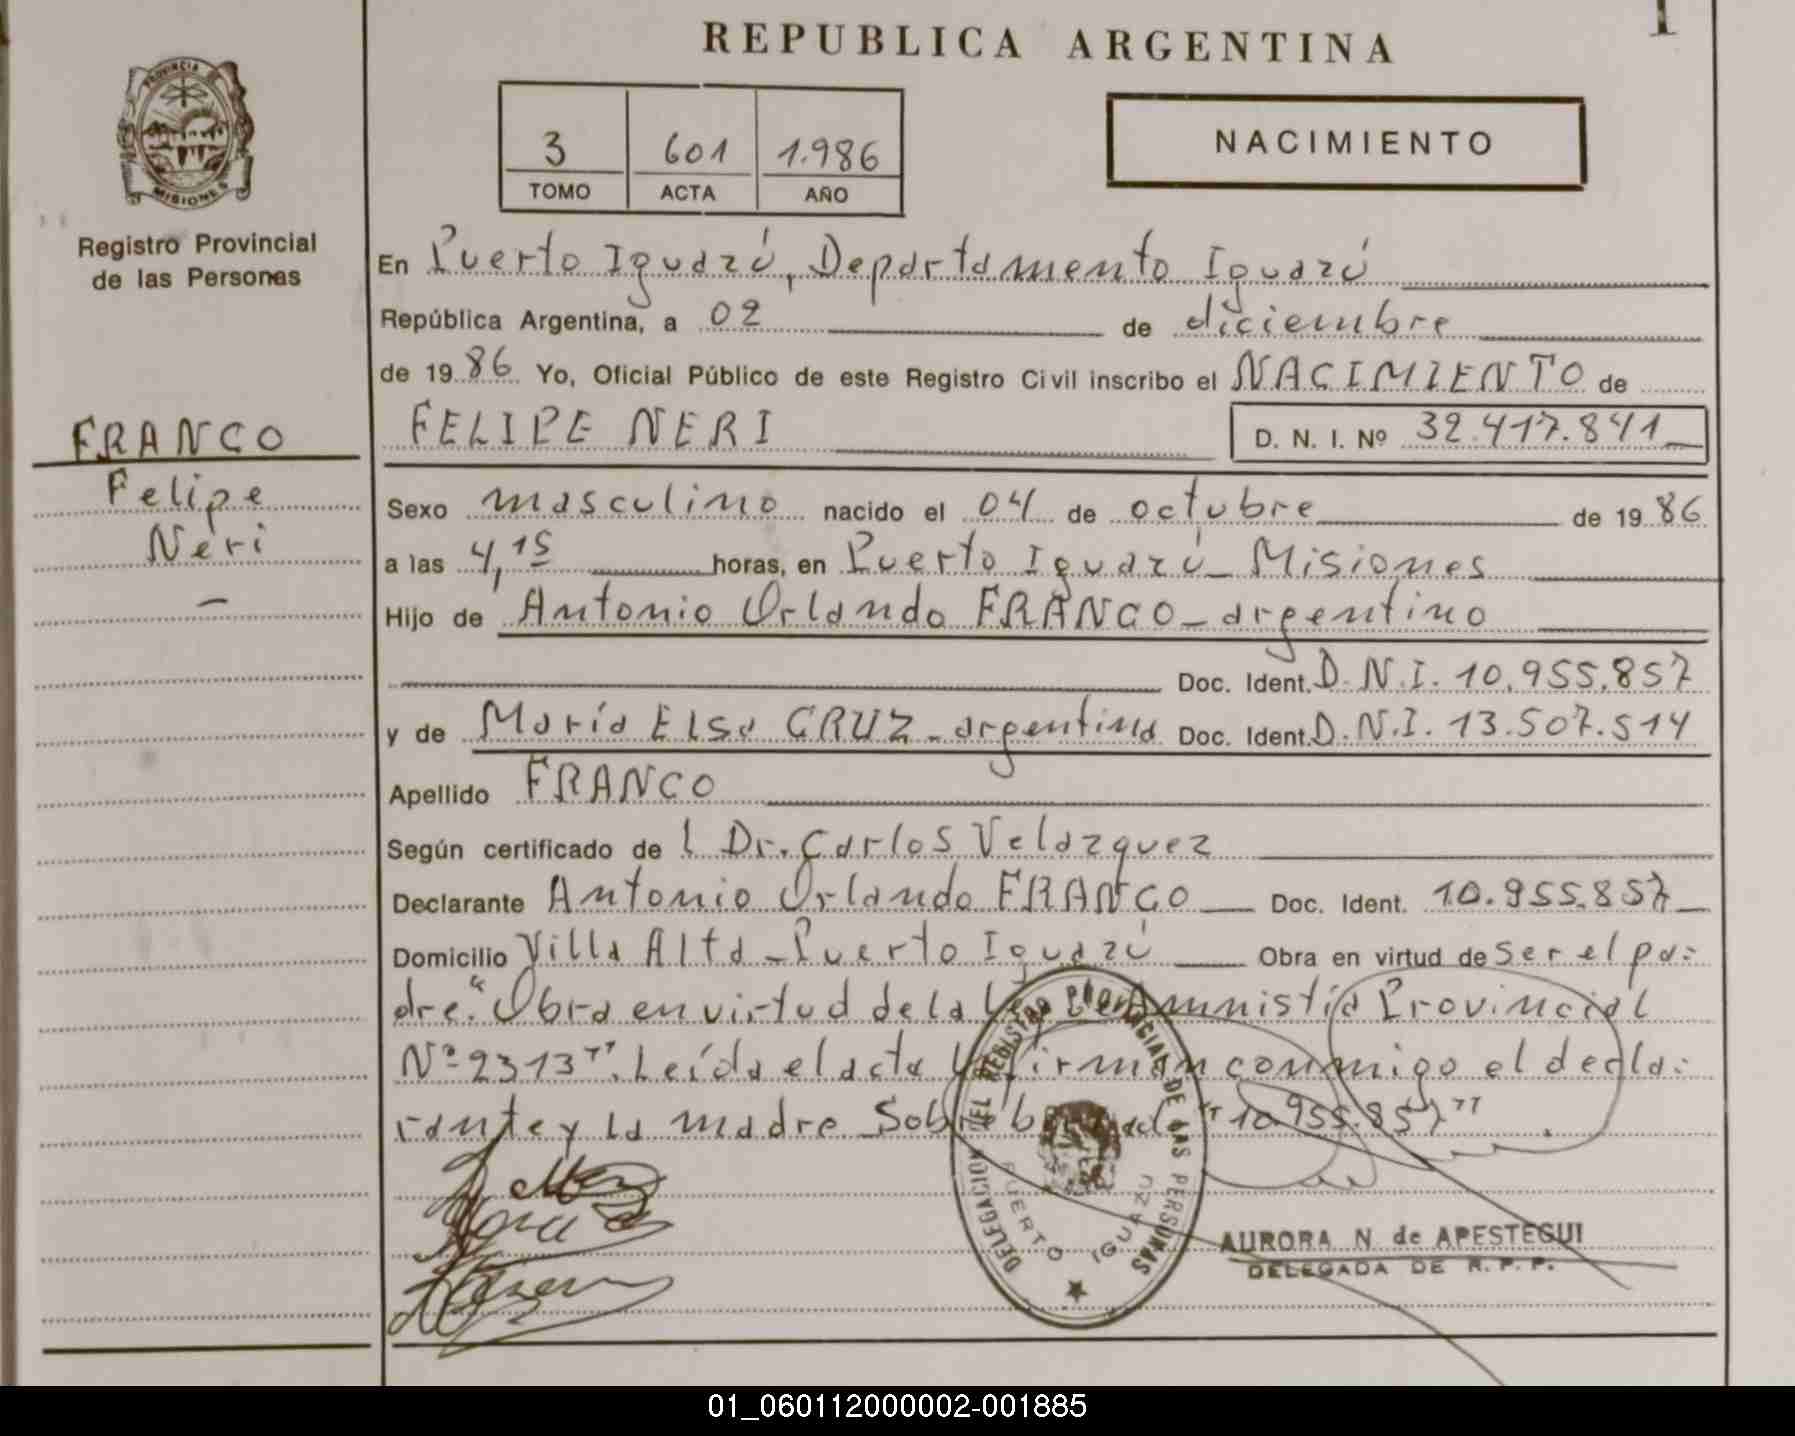 REPUBLICA ARGENTINA
1
PROVINCIA DE MISIONES
Registro Provincial
de las Personas
3 601 1.986
TOMO ACTA AÑO
NACIMIENTO
En Puerto Iguazú, Departamento Iguazú
República Argentina, a 02 de diciembre
de 1986 Yo, Oficial Público de este Registro Civil inscribo el NACIMIENTO de
FELIPE NERI D. N. I. Nº 32.417.841
FRANCO
Felipe
Neri
Sexo masculino nacido el 04 de octubre de 1986
a las 4,15 horas, en Puerto Iguazú - Misiones
Hijo de Antonio Orlando FRANCO - argentino
Doc. Ident. D.N.I. 10.955.857
y de María Elsa CRUZ - argentina Doc. Ident. D.N.I. 13.507.514
Apellido FRANCO
Según certificado de l Dr. Carlos Velazquez
Declarante Antonio Orlando FRANCO Doc. Ident. 10.955.857
Domicilio Villa Alta - Puerto Iguazú Obra en virtud de ser el pa=
dre. "Obra en virtud de la Ley de Amnistía Provincial
Nº 2313". Leída el acta la firman conmigo el decla=
rante y la madre Sobre "10.955.857"
DELEGACION DEL REGISTRO PROVINCIAL DE LAS PERSONAS
PUERTO IGUAZU
AURORA N de APESTEGUI
DELEGADA DE R. P. P.
01_060112000002-001885